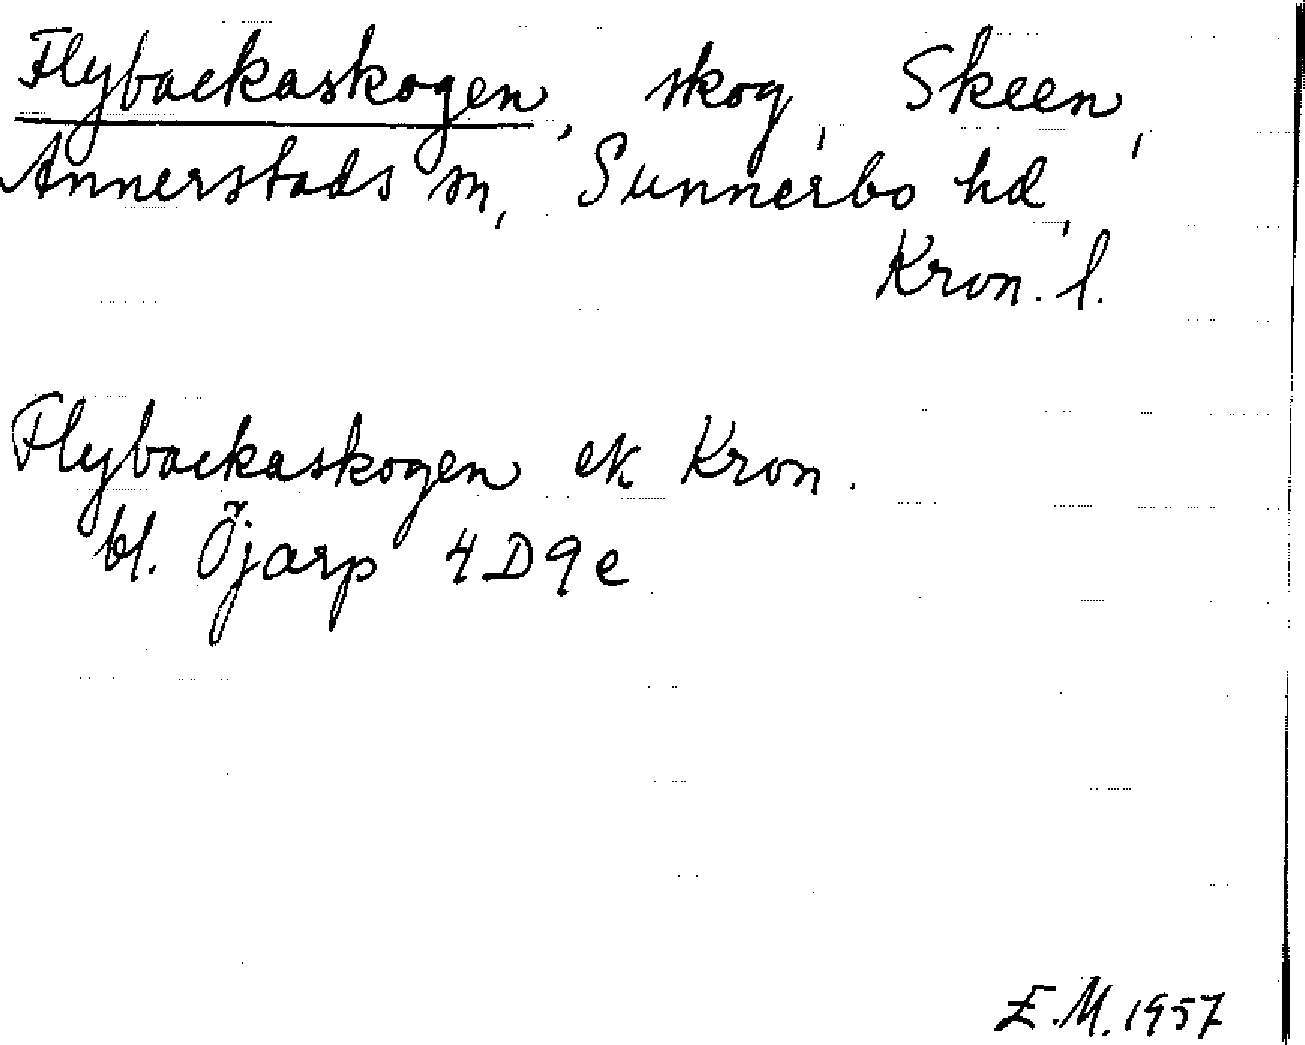 Flybackaskogen, skog, Skeen,
Annerstads sn, Sunnerbo hd,
Kron. l.
Flybackaskogen ek Kron.
bl. Öjarp 4D9e
E.M. 1957